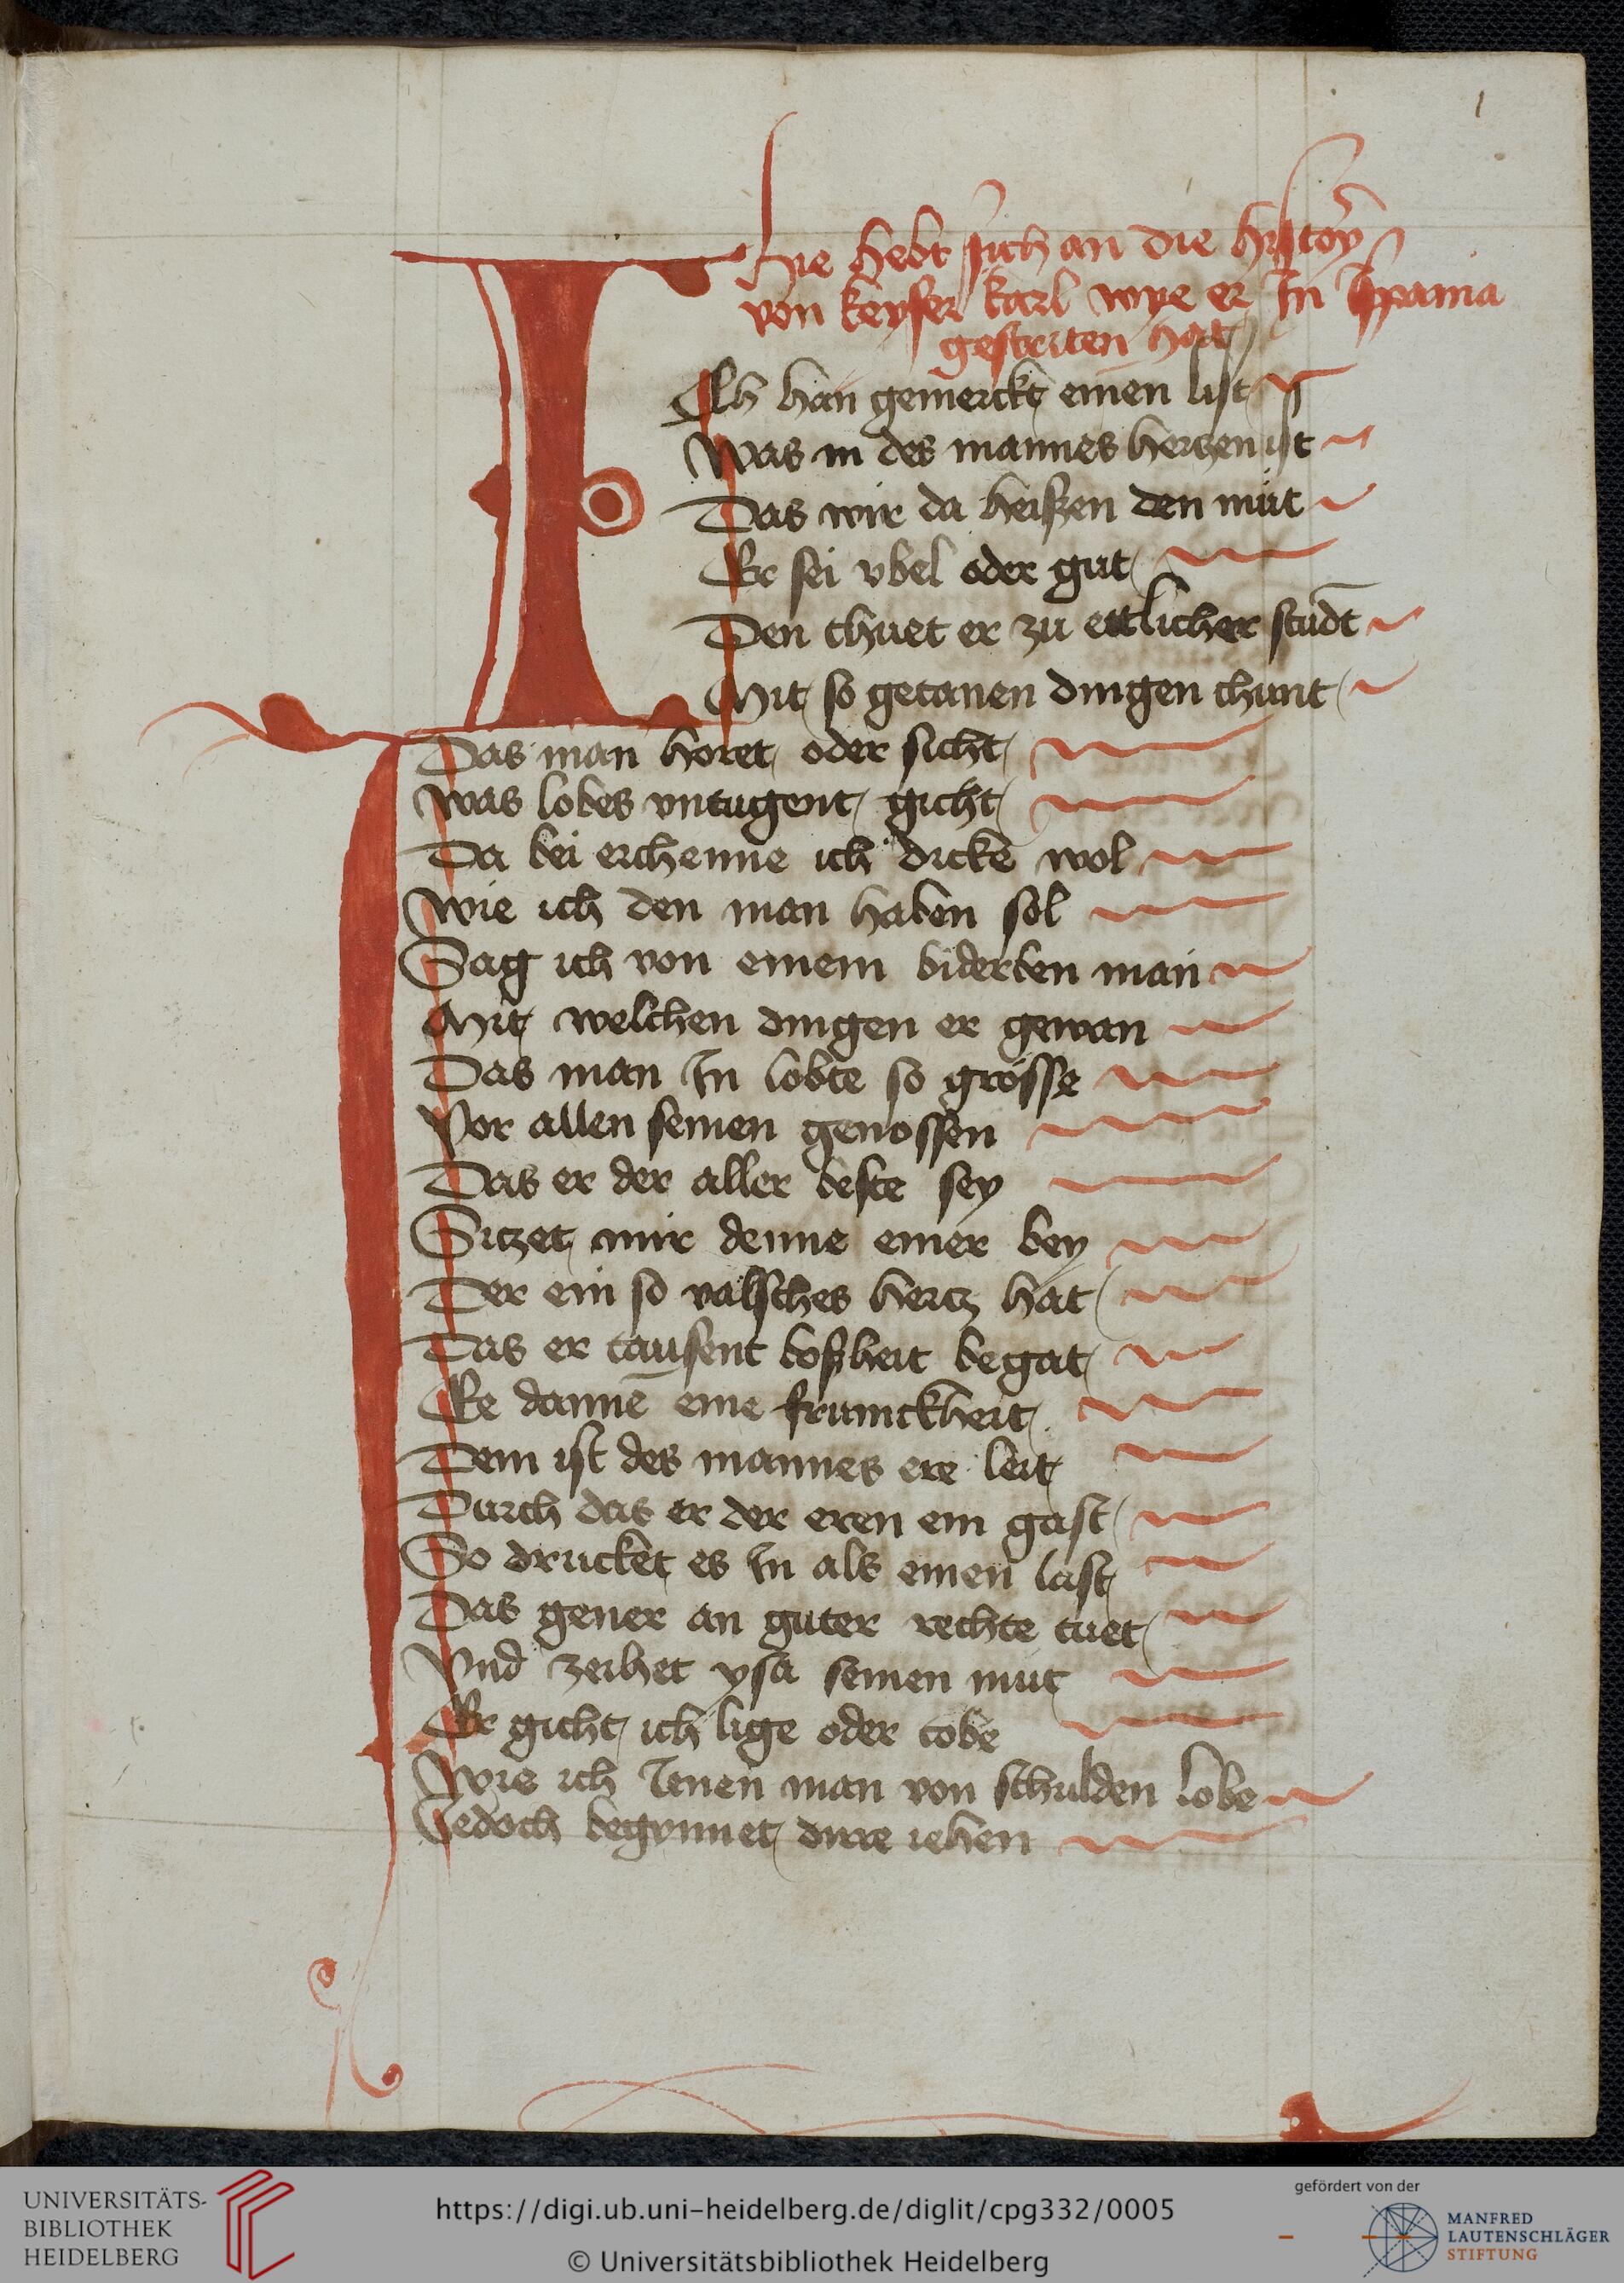 1
Hie hebt sich an die hystory
von keyser karl wye er In Hyspania
gestriten hat
Ich han gemerckt einen list
Was in des mannes hertzen ist
Das wir da heissen den mut
Er sei vbel oder gut
Den thuet er zu ettlicher stūdt
Mit so getanen dingen chunt
Das man horet oder sicht
Was lobes vntugent gicht
Da bei erchenne ich dicke wol
Wie ich den man haben sol
Sag ich von einem biderben man
Mit welchen dingen er gewan
Das man In lobte so grosse
Vor allen seinen genossen
Das er der aller beste sey
Siczet mir denne einer bey
Der ein so valsches hertz hat
Das er tausent boßheit begat
Ee dannē eine frumckheit
Dem ist des mannes ere leit
Durch das er der eren ein gast
So drucket es In als einen last
Das gener an guter rechte tuet
Vnd zeihet ysa seinen mut
Er gicht ich lige oder tobe
Wie ich Jenen man von schulden lobe
Jedoch begynnet dirre iehen
UNIVERSITÄTS-
BIBLIOTHEK
HEIDELBERG
https://digi.ub.uni-heidelberg.de/diglit/cpg332/0005
© Universitätsbibliothek Heidelberg
gefördert von der
MANFRED
LAUTENSCHLÄGER
STIFTUNG